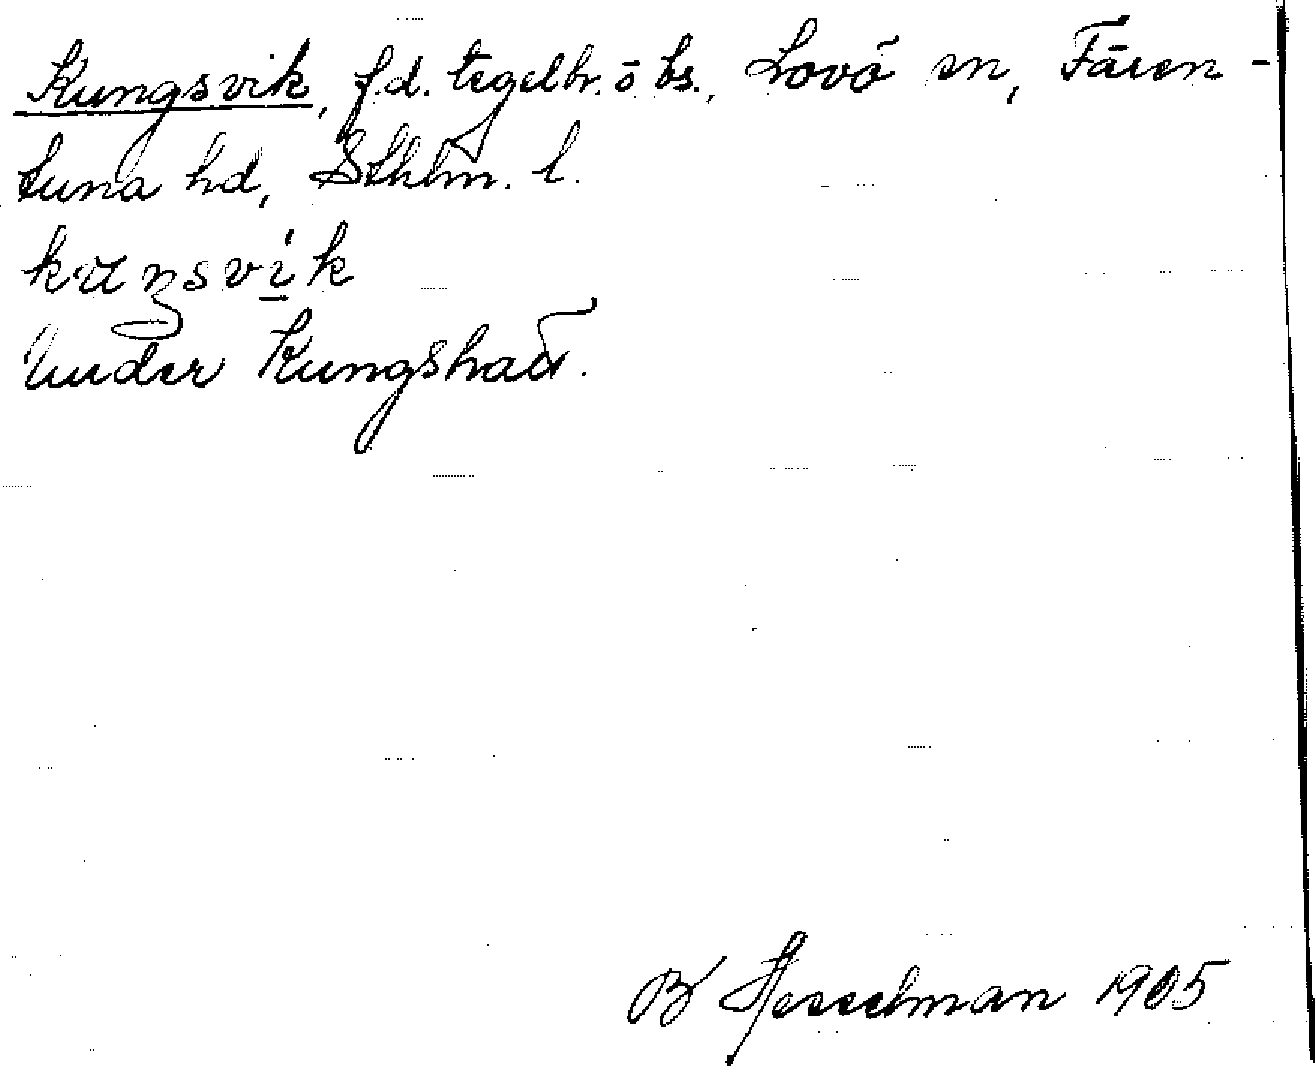 Kungsvik, f.d. tegelbr. o bs., Lovö sn, Fären-
tuna hd, Sthlm. l.
kuŋsvi̲k
Under Kungshatt.
B Hesselman 1905